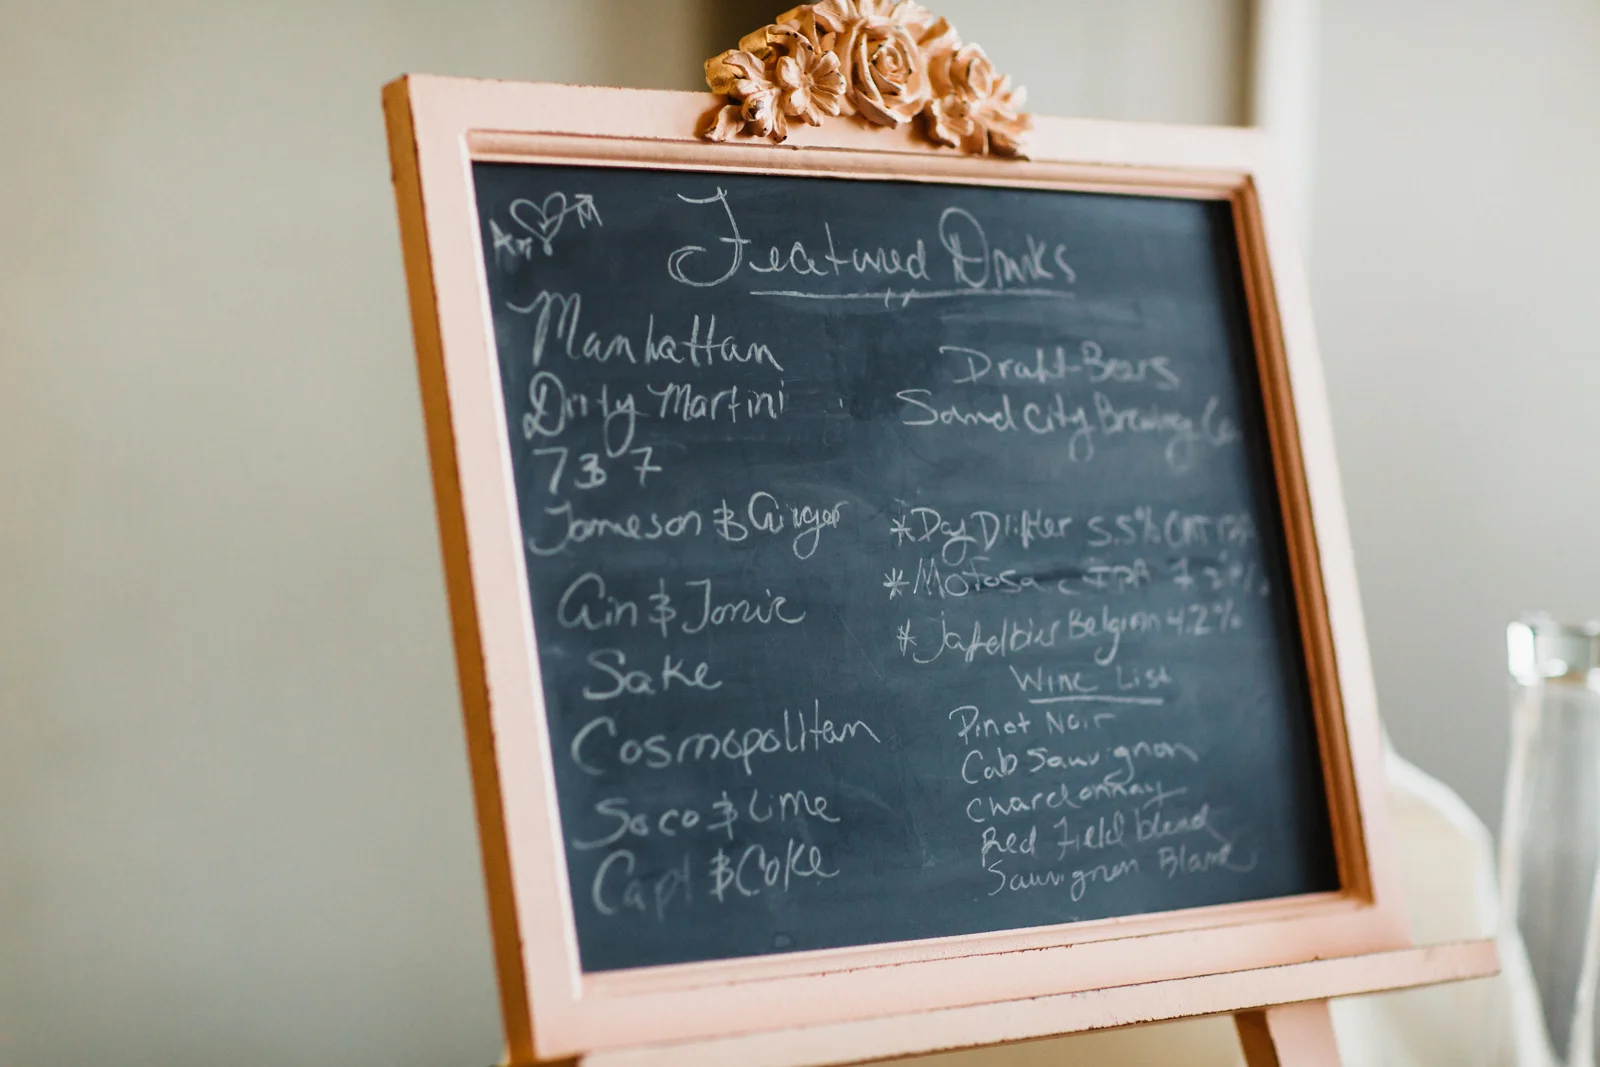 Featured Drinks
Manhattan
Dirty Martini
7 & 7
Jameson & Ginger
Gin & Tonic
Sake
Cosmopolitan
Soco & Lime
Capt & Coke
Draft Beers
Sand City Brewing Co
*Day Drifter 5.5%
*Mofosaic IPA 7.2%
*Jafelbier Belgian 4.2%
Wine List
Pinot Noir
Cab Sauvignon
Chardonnay
Red Field blend
Sauvignon Blanc